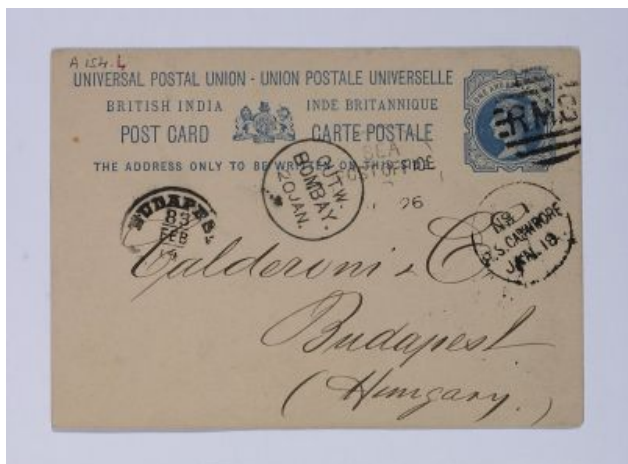 A 154.4
UNIVERSAL POSTAL UNION - UNION POSTALE UNIVERSELLE
BRITISH INDIA INDE BRITANNIQUE
POST CARD CARTE POSTALE
THE ADDRESS ONLY TO BE WRITTEN ON THIS SIDE
SEA
POST OFFICE
OUTW.
BOMBAY.
20 JAN.
RMS
BUDAPEST
83
FEB
No 1
R.S. CAWNPORE
JAN. 18
Calderoni & Co
Budapest
(Hungary.)